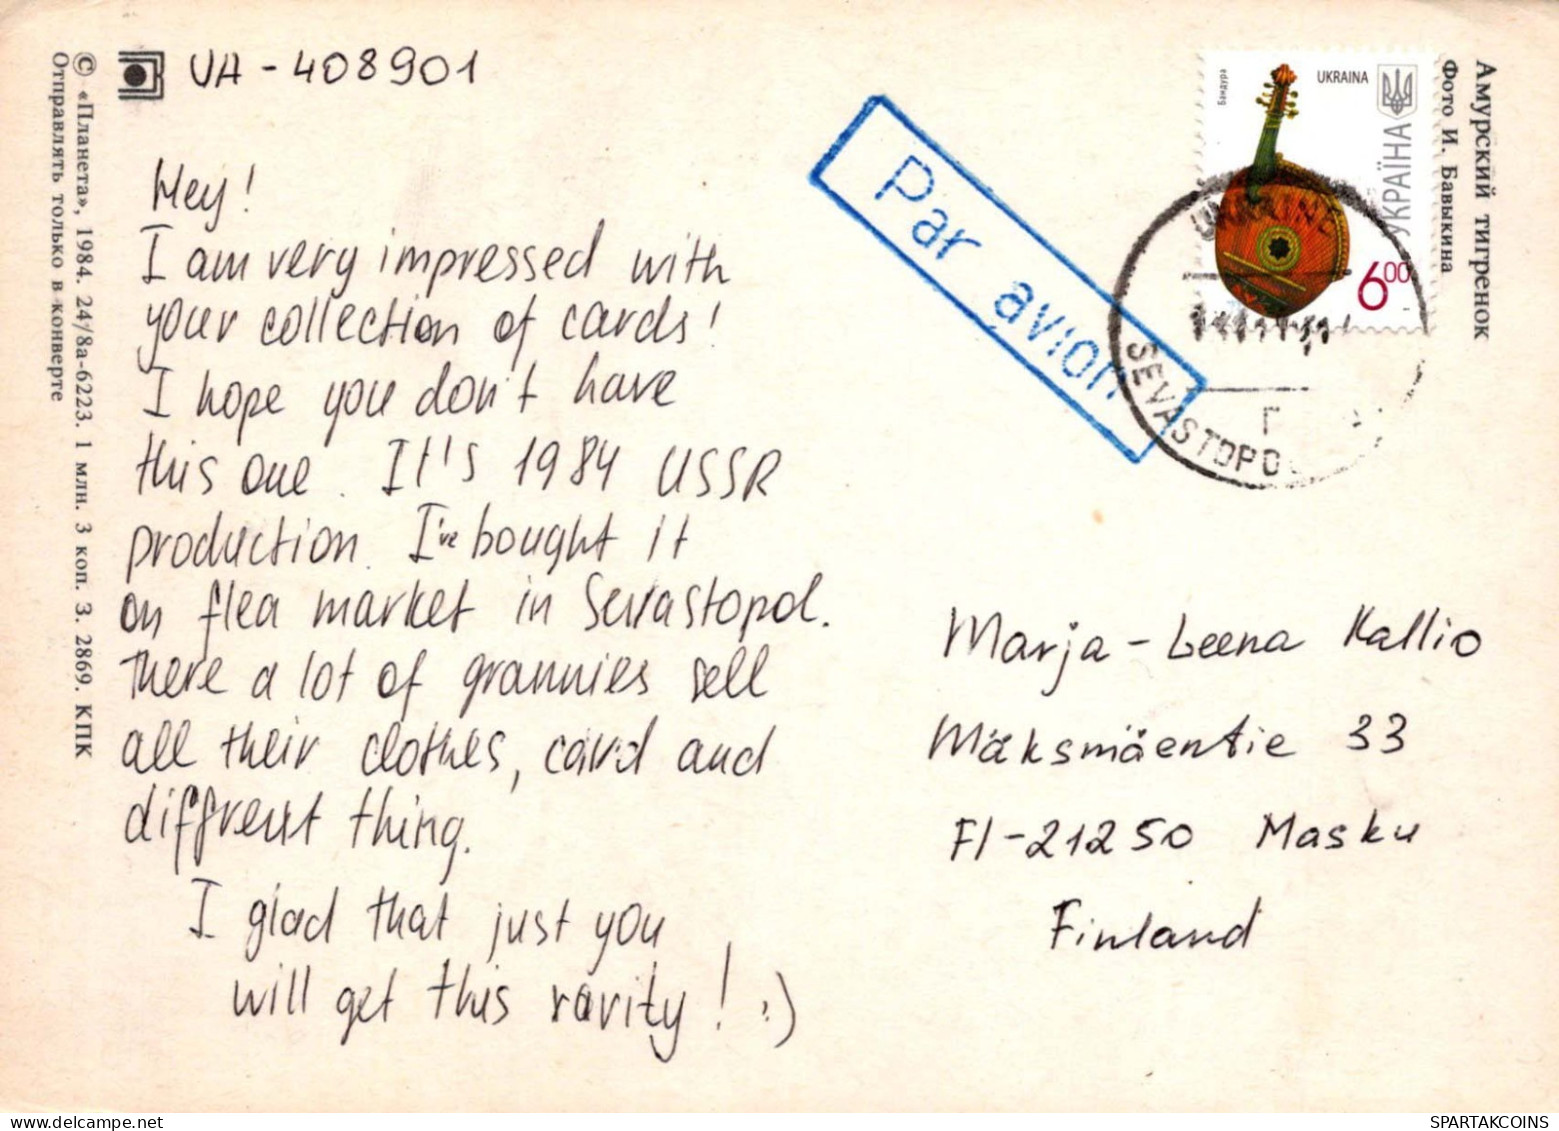 UA - 408901
Hey!
I am very impressed with
your collection of cards!
I hope you don't have
this one. It's 1984 USSR
production. I've bought it
on flea market in Sevastopol.
There a lot of grannies sell
all their clothes, card and
different thing.
I glad that just you
will get this rarity! :)
© «Планета», 1984. 24/8а-6223. 1 млн. 3 коп. З. 2869. КПК
Отправлять только в конверте
Par avion
Бандура
UKRAINA
УКРАЇНА
6 00
UKRAINE
SEVASTOPO
Г
Амурский тигренок
Фото И. Бавыкина
Marja-Leena Kallio
Mäksmäentie 33
FI-21250 Masku
Finland
SPARTAKCOINS